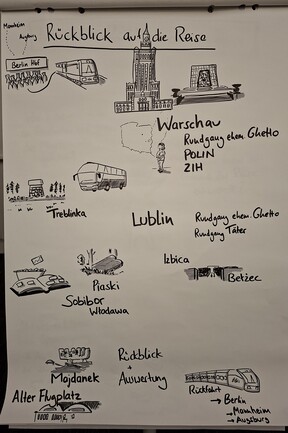 Mannheim
Augsburg
Rückblick auf die Reise
Berlin Hbf
Warschau
Rundgang ehem. Ghetto
POLIN
ŻIH
Treblinka
Lublin
Rundgang ehem. Ghetto
Rundgang Täter
Izbica
Bełżec
Piaski
Sobibor
Włodawa
Majdanek
Rückblick
+
Auswertung
Alter Flugplatz
Rückfahrt
→ Berlin
→ Mannheim
→ Augsburg